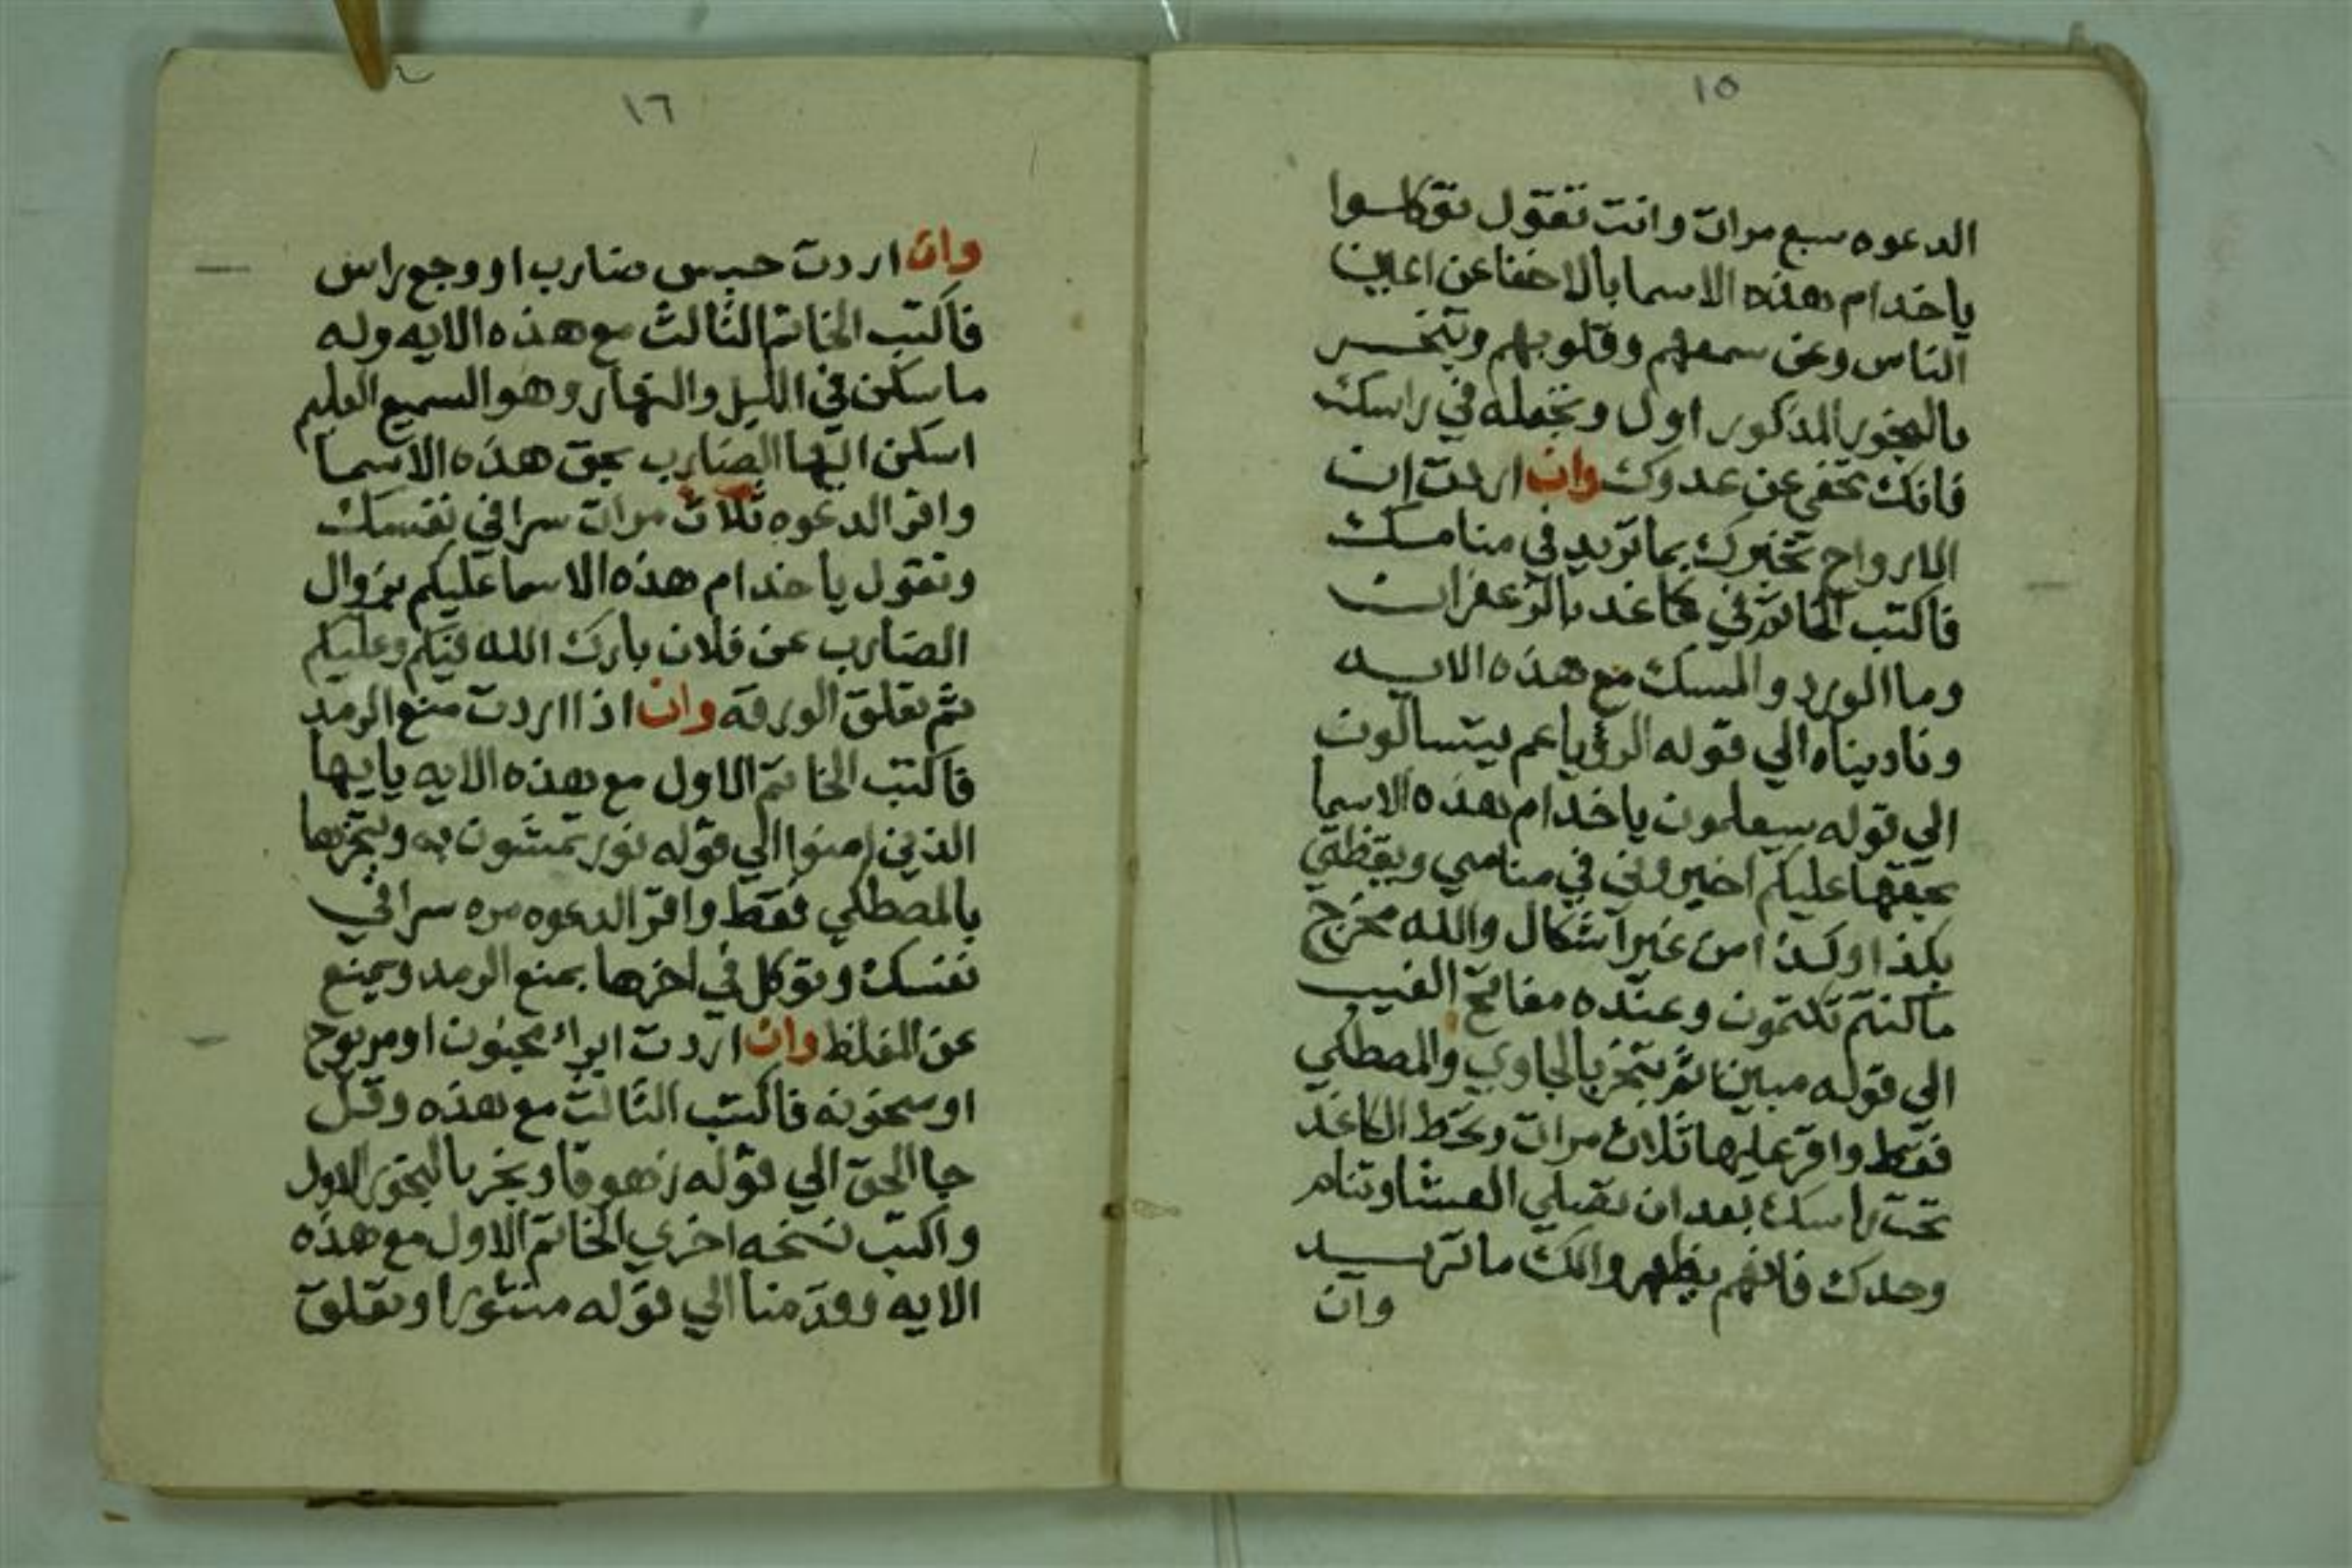 ١٥
الدعوه سبع مرات وانت تقول توكلوا
ياخدام هذه الاسما بالاخفا عن اعاين
الناس وعن سمعهم وقلوبهم وتبخر
بالبخور المذكور اول وتجعله في راسك
فانك تخفي عن عدوك وان اردت ان
الارواح تخبرك بما تريد في منامك
فاكتب الخاتم في كاغد بالزعفران
وما الورد والمسك مع هذه الايه
وناديناه الي قوله الرؤيا عم يتسالون
الي قوله سيعلمون ياخدام هذه الاسما
بحقها عليكم اخبروني في منامي ويقظتي
بكذا وكذا من غير اشكال والله مخرج
ما كنتم تكتمون وعنده مفاتح الغيب
الي قوله مبين ثم تبخر بالجاوي والمصطكي
فقط واقر عليها ثلاث مرات وتحط الكاغد
تحت راسك بعد ان تصلي العشا وتنام
وحدك فانهم يظهروا لك ما تريد
وان
١٦
وان اردت حبس ضارب او وجع راس
فاكتب الخاتم الثالث مع هذه الايه وله
ما سكن في الليل والنهار وهو السميع العليم
اسكن ايها الضارب بحق هذه الاسما
واقر الدعوه ثلاث مرات سرا في نفسك
وتقول ياخدام هذه الاسما عليكم بزوال
الضارب عن فلان بارك الله فيكم وعليكم
ثم تعلق الورقة وان اذا اردت منع الرمد
فاكتب الخاتم الاول مع هذه الايه يايها
الذين امنوا الي قوله نور تمشون به وتبخرها
بالمصطكي فقط واقر الدعوه مره سرا في
نفسك وتوكل في اخرها بمنع الرمد ويمنع
عن الغلظ وان اردت ابراء مجنون او مربوح
او سخونه فاكتب الثالث مع هذه وقل
جا الحق الي قوله زهوقا وبخر بالبخور الاول
واكتب نسخه اخري الخاتم الاول مع هذه
الايه وقدمنا الي قوله منثورا وتعلق